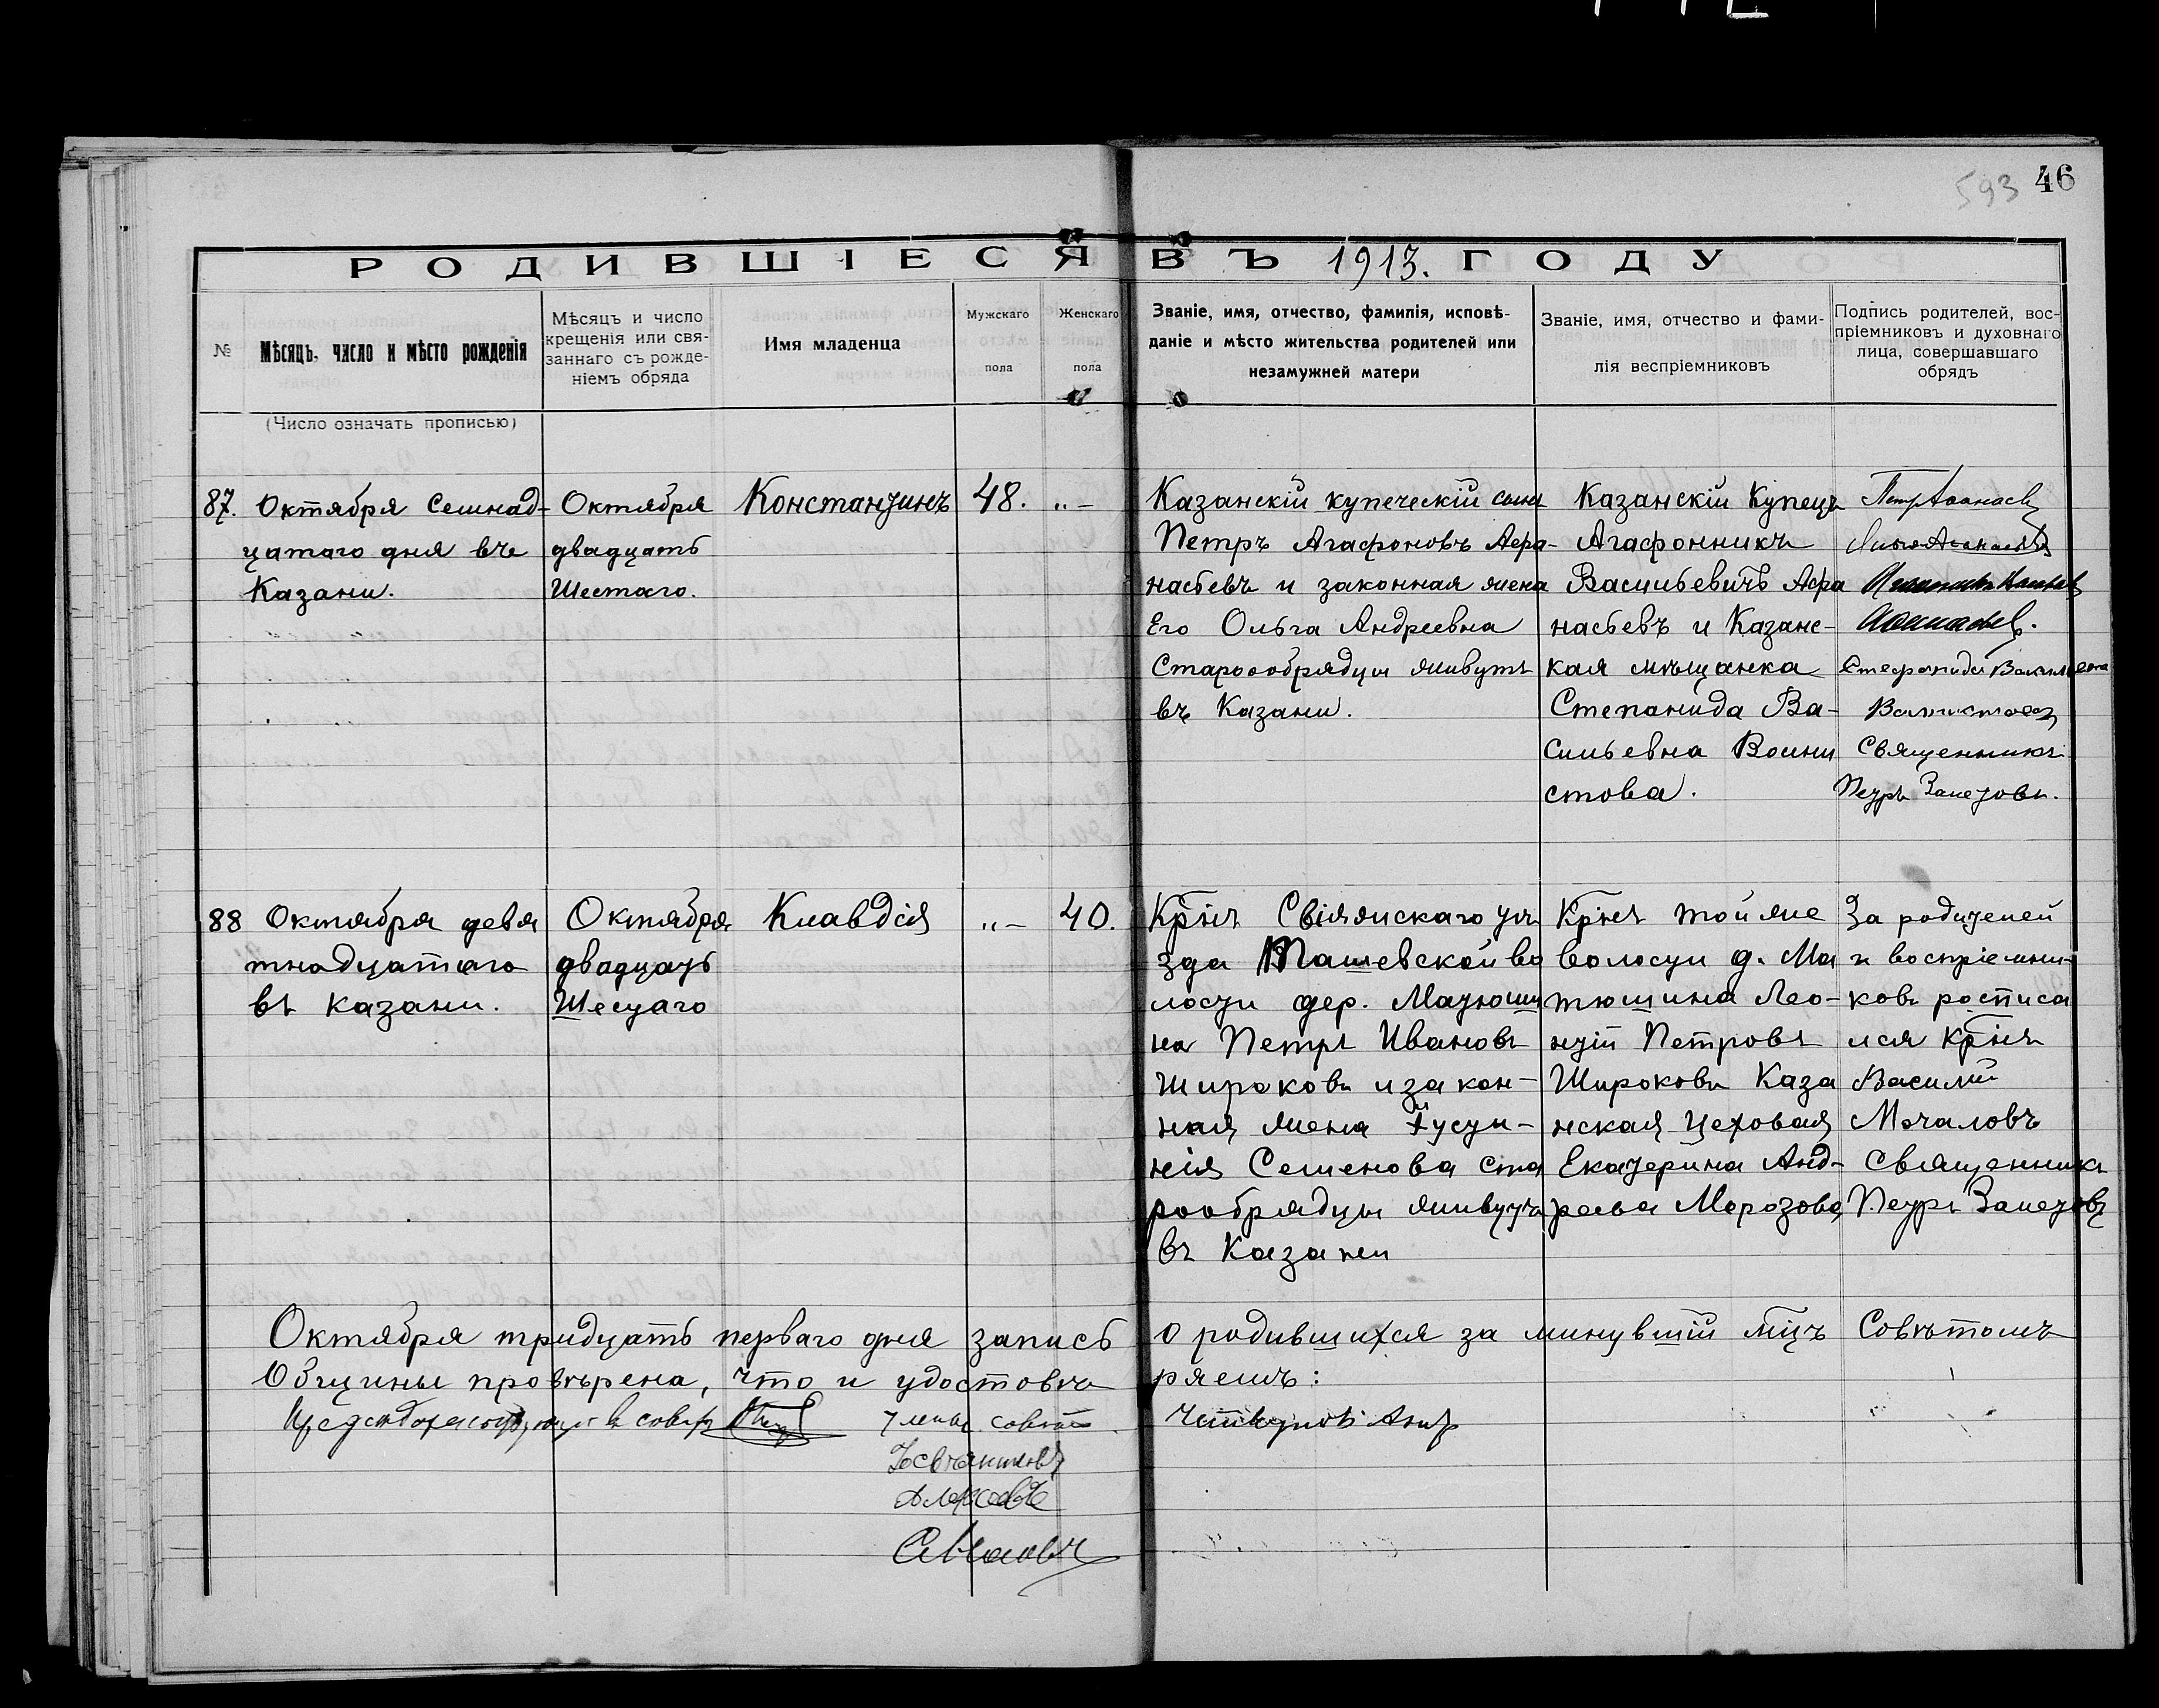 593 46
РОДИВШІЕСЯ ВЪ 1913. ГОДУ
№
Мѣсяцъ, число и мѣсто рожденія
(Число означать прописью)
Мѣсяцъ и число
крещенія или свя-
заннаго съ рожде-
ніемъ обряда
Имя младенца
Мужскаго
пола
Женскаго
пола
Званіе, имя, отчество, фамилія, исповѣ-
даніе и мѣсто жительства родителей или
незамужней матери
Званіе, имя, отчество и фами-
лія веспріемниковъ
Подпись родителей, вос-
пріемниковъ и духовнаго
лица, совершавшаго
обрядъ
87.
Октября Семнад-
цатаго дня въ
Казани.
Октября
двадцать
Шестаго.
Константинъ
48.
„ –
Казанскій купеческій сынъ
Петръ Агафоновъ Афа-
насьевъ и законная жена
Его Ольга Андреевна
Старообрядцы живутъ
въ Казани.
Казанскій Купецъ
Агафонникъ
Васильевичъ Афа
насьевъ и Казанс-
кая мѣщанка
Степанида Ва-
сильевна Воини
стова.
Священникъ
Петръ Залетовъ.
88
Октября девя
тнадцатаго
въ Казани.
Октября
двадцать
Шестаго
Клавдія
„ –
40.
Кр̅нъ Свіяжскаго уѣ
зда Ташевской во
лости дер. Матюши
на Петръ Ивановъ
Широковъ и закон-
ная жена Хусти-
нія Семенова ста
рообрядцы живутъ
въ Казани
Кр̅нъ той же
волости д. Ма
тюшина Лео-
нтій Петровъ
Широковъ Каза
нская Цеховая
Екатерина Анд-
реева Морозова
За родителей
и воспріемни-
ковъ росписа
лся Кр̅нъ
Василій
Мочаловъ
Священникъ
Петръ Залетовъ
Октября тридцать перваго дня запись о родившихся за минувшій мц̅ъ Совѣтомъ
Общины провѣрена, что и удостовѣ ряемъ: